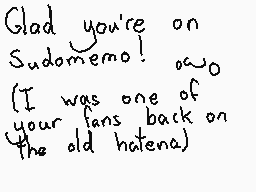 Glad you're on
Sudomemo! owo
(I was one of
your fans back on
the old hatena)